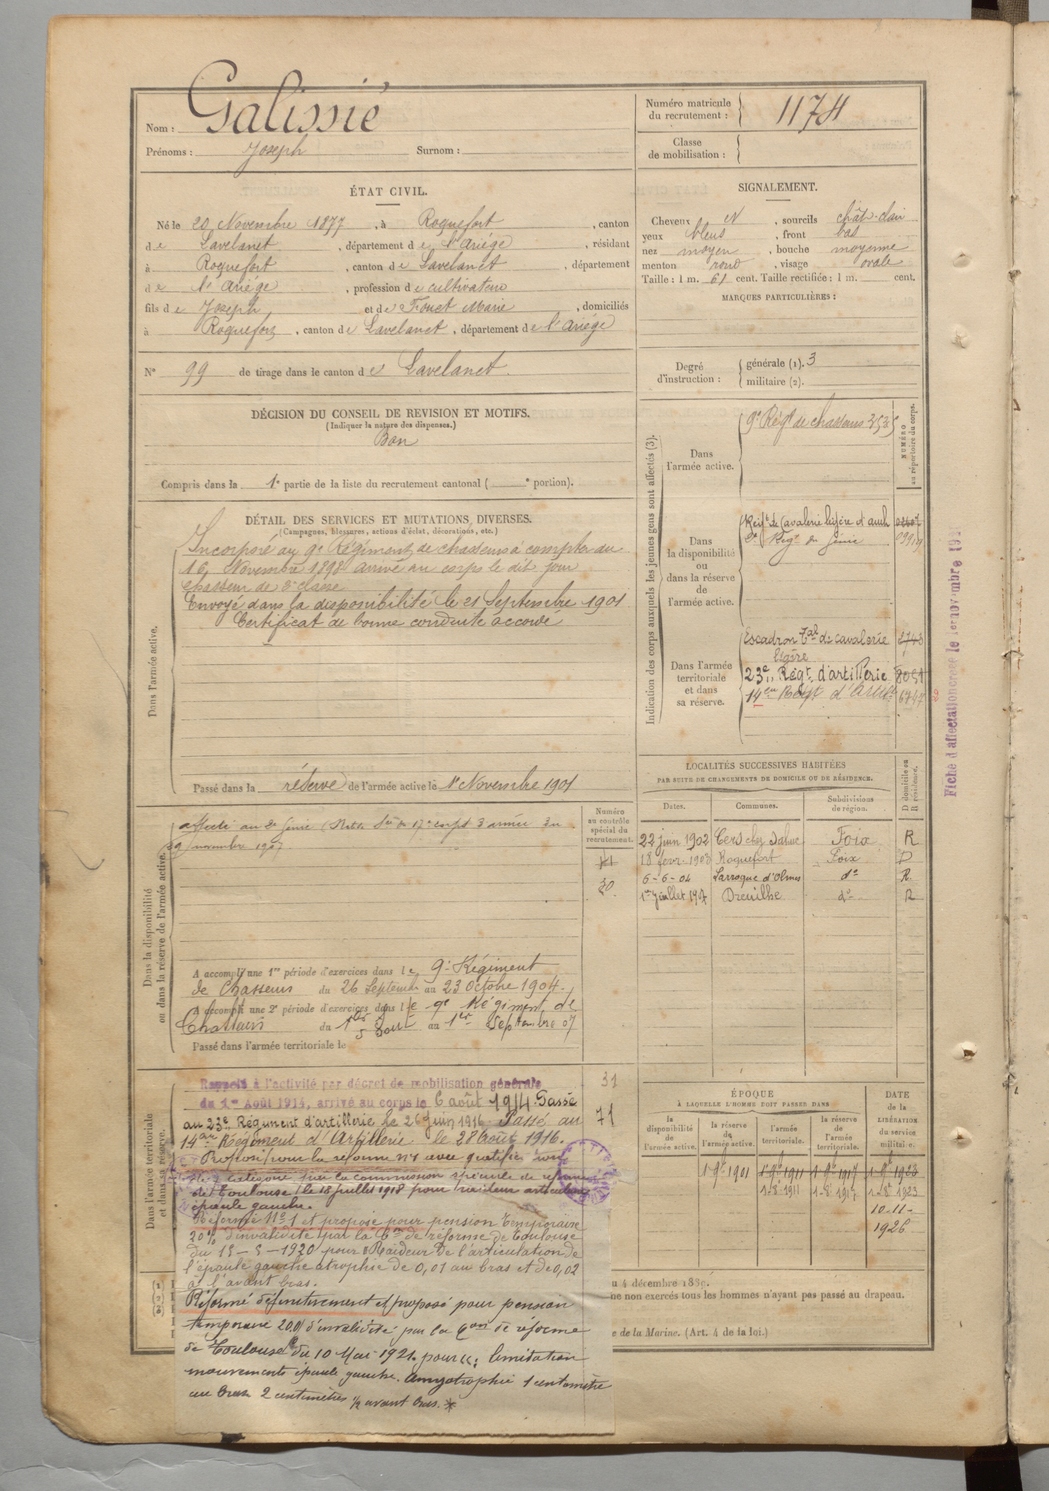 Nom : Galissié
Prénoms : Joseph Surnom :
Numéro matricule du recrutement : 1174
Classe de mobilisation :
ÉTAT CIVIL.
Né le 20 Novembre 1877, à Roquefort, canton
de Lavelanet, département de l'Ariége, résidant
à Roquefort, canton de Lavelanet, département
de l'Ariége, profession de cultivateur
fils de Joseph et de Fouet Marie, domiciliés
à Roquefort, canton de Lavelanet, département de l'Ariége
N° 99 de tirage dans le canton de Lavelanet.
SIGNALEMENT.
Cheveux N, sourcils chât-clair
yeux bleus, front bas
nez moyen, bouche moyenne
menton rond, visage ovale
Taille : 1 m. 61 cent. Taille rectifiée : 1 m. cent.
MARQUES PARTICULIÈRES :
Degré d'instruction : générale (1). 3
militaire (2).
DÉCISION DU CONSEIL DE REVISION ET MOTIFS.
(Indiquer la nature des dispenses.)
Bon
Compris dans la 1e partie de la liste du recrutement cantonal ( e portion).
DÉTAIL DES SERVICES ET MUTATIONS DIVERSES.
(Campagnes, blessures, actions d'éclat, décorations, etc.)
Dans l'armée active.
Incorporé au 9e Régiment de chasseurs à compter du
16 Novembre 1898 arrivé au corps le dit jour
chasseur de 2e classe
Envoyé dans la disponibilité le 21 Septembre 1901
Certificat de bonne conduite accordé
Passé dans la réserve de l'armée active le 1er Novembre 1901
Indication des corps auxquels les jeunes gens sont affectés (3).
NUMÉRO au répertoire du corps.
Dans l'armée active.
9e Régt de chasseurs 3535
Dans la disponibilité ou dans la réserve de l'armée active.
Regt de Cavalerie légère d'Auch
2e Régt du Génie
Dans l'armée territoriale et dans sa réserve.
Escadron Tal de cavalerie
légère
23e Régt d'artillerie
14e Régt d'Art
Fiche d'affectation
LOCALITÉS SUCCESSIVES HABITÉES
PAR SUITE DE CHANGEMENTS DE DOMICILE OU DE RÉSIDENCE.
Dates. Communes. Subdivisions de région. D domicile ou R résidence.
22 juin 1902 Foix R
18 févr 1903 Roquefort Foix D
6-6-04 Larroque d'Olmes do R
1er juillet 1907 Dreuilhe do R
Dans la disponibilité ou dans la réserve de l'armée active.
Numéro au contrôle spécial du recrutement.
affecté au 2e Génie
novembre 1907
30
A accompli une 1re période d'exercices dans le 9e Régiment
de Chasseurs du 26 Septembre au 23 Octobre 1904.
A accompli une 2e période d'exercices dans le 9e Régiment de
Chasseurs du au 1er Septembre 07
Passé dans l'armée territoriale le
Dans l'armée territoriale et dans sa réserve.
31
71
Rappelé à l'activité par décret de mobilisation générale
du 1er Août 1914, arrivé au corps le 6 août 1914 Passé
au 23e Régiment d'artillerie le 26 juin 1916. Passé au
14e Régiment d'Artillerie le 28 août 1916.
Proposé pour la réforme n°1 avec gratific
2e catégorie par la commission spéciale de réforme
de Toulouse le 18 juillet 1918 pour raideur articulaire
épaule gauche.
Réformé N°1 et proposé pour pension temporaire
20% d'invalidité par la Con de réforme de Toulouse
du 15-5-1920 pour Raideur de l'articulation de
l'épaule gauche atrophie de 0,01 au bras et de 0,02
à l'avant bras.
Réformé définitivement et proposé pour pension
temporaire 20% d'invalidité par la Con de réforme
de Toulouse du 10 Mai 1921. pour : limitation
mouvements épaule gauche. amyotrophie 1 centimètre
au bras 2 centimètres ½ avant bras. *
ÉPOQUE
À LAQUELLE L'HOMME DOIT PASSER DANS
la disponibilité de l'armée active. la réserve de l'armée active. l'armée territoriale. la réserve de l'armée territoriale.
DATE de la LIBÉRATION du service militaire.
1-9e 1901
10-11-
1926
u 4 décembre 1889.
ne non exercés tous les hommes n'ayant pas passé au drapeau.
e de la Marine. (Art. 4 de la loi.)